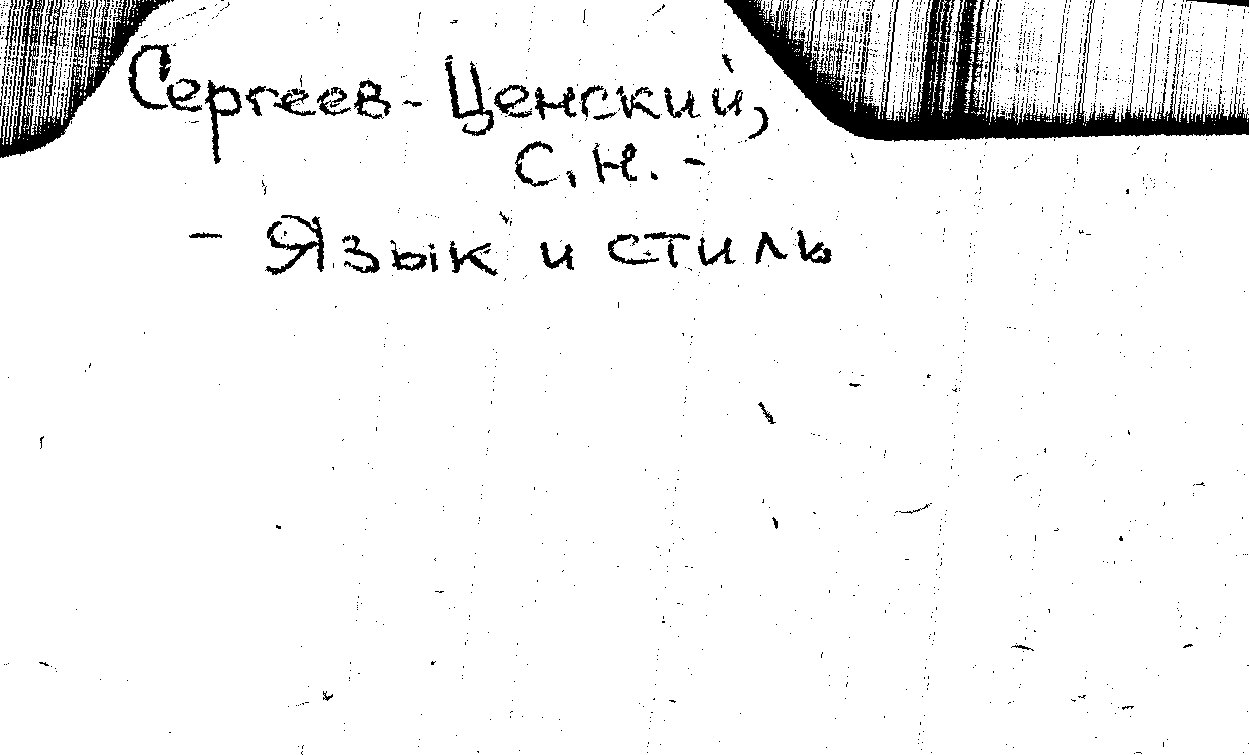 Сергеев-Ценский,
С.Н. -
- Язык и стиль